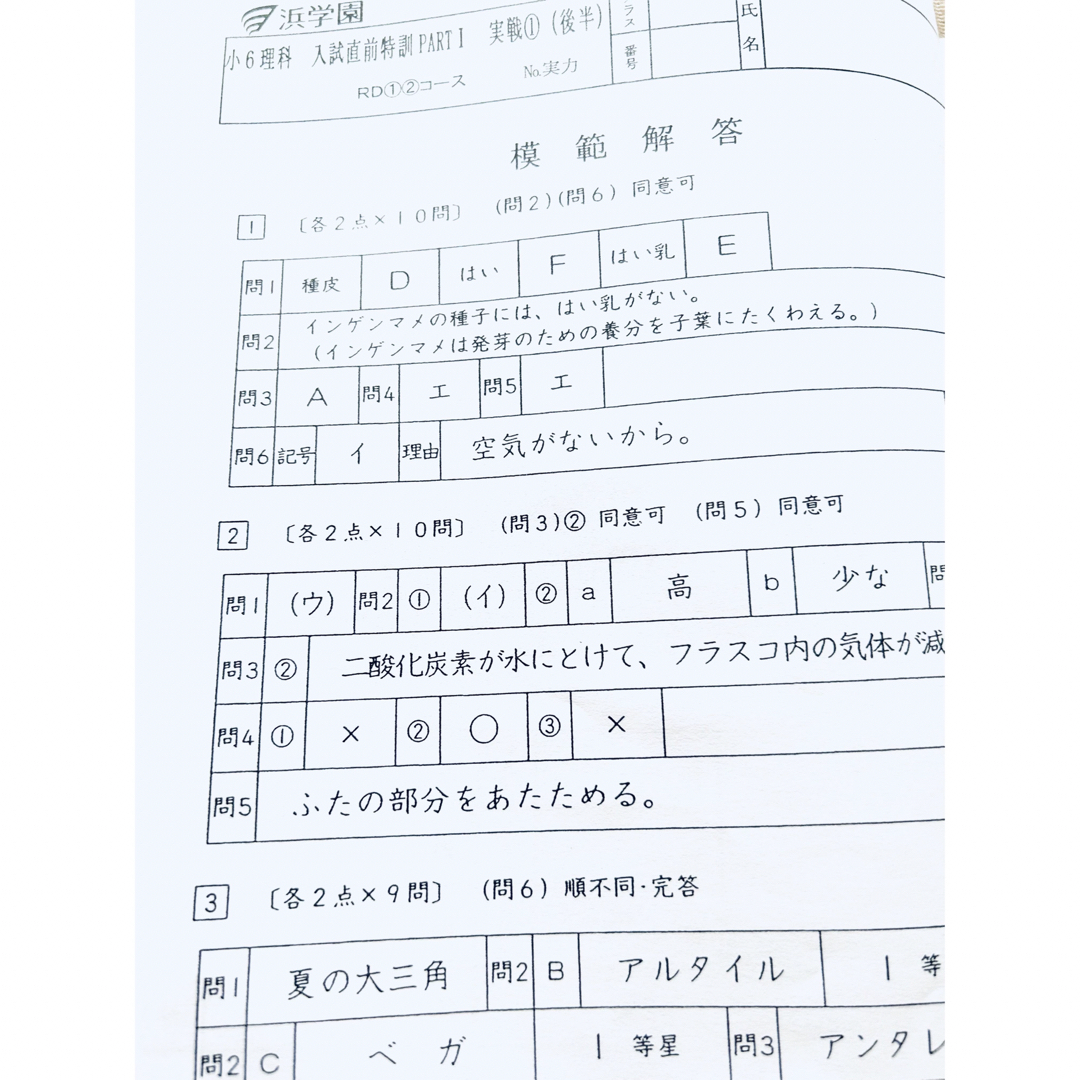 浜学園
小6理科 入試直前特訓PARTⅠ 実戦①(後半)
ラス
氏名
番号
RD①②コース No.実力
模範解答
1 〔各2点×10問〕 (問2)(問6) 同意可
問1 種皮 D はい F はい乳 E
問2 インゲンマメの種子には、はい乳がない。
(インゲンマメは発芽のための養分を子葉にたくわえる。)
問3 A 問4 エ 問5 エ
問6 記号 イ 理由 空気がないから。
2 〔各2点×10問〕 (問3)② 同意可 (問5) 同意可
問1 (ウ) 問2 ① (イ) ② a 高 b 少な 問
問3 ② 二酸化炭素が水にとけて、フラスコ内の気体が減
問4 ① × ② ○ ③ ×
問5 ふたの部分をあたためる。
3 〔各2点×9問〕 (問6) 順不同・完答
問1 夏の大三角 問2 B アルタイル 1 等
問2 C ベガ 1 等星 問3 アンタレ